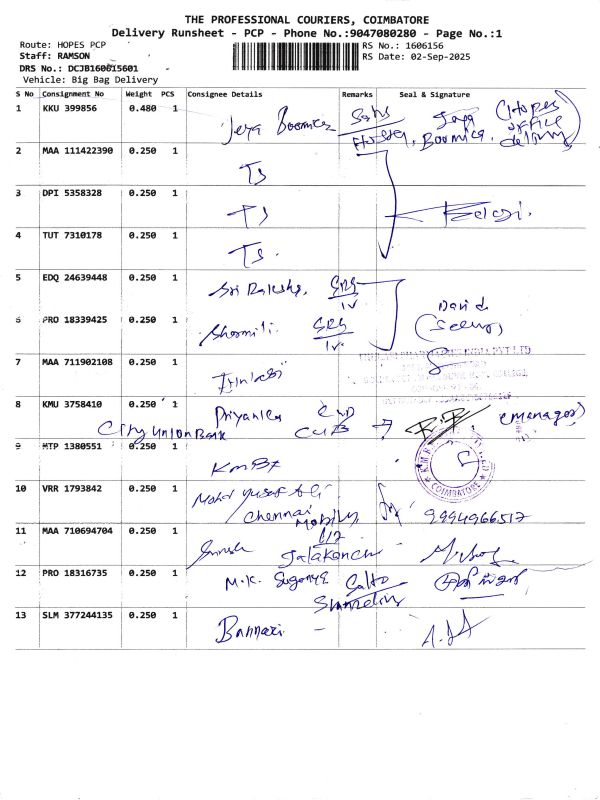 THE PROFESSIONAL COURIERS, COIMBATORE
Delivery Runsheet - PCP - Phone No.:9047080280 - Page No.:1
Route: HOPES PCP
RS No.: 1606156
Staff: RAMSON
RS Date: 02-Sep-2025
DRS No.: DCJB160615601
Vehicle: Big Bag Delivery
S No Consignment No Weight PCS Consignee Details Remarks Seal & Signature
1 KKU 399856 0.480 1 Jeya Boomica
Jaya Boomica.
(Hopes office delivery)
2 MAA 111422390 0.250 1 TS
3 DPI 5358328 0.250 1 TS
4 TUT 7310178 0.250 1 TS.
5 EDQ 24639448 0.250 1 Sri SRS
IV
David
6 PRO 18339425 0.250 1 SRS
IV.
7 MAA 711902108 0.250 1
8 KMU 3758410 0.250 1 Priyanka CUB
(Manager)
City Union Bank CUB →
9 MTP 1380551 0.250 1 KMBT
COIMBATORE
10 VRR 1793842 0.250 1 Yusuf Ali
Chennai Mobiles
9994966517
11 MAA 710694704 0.250 1
12 PRO 18316735 0.250 1 M.K. Suganya
13 SLM 377244135 0.250 1 Bannari -